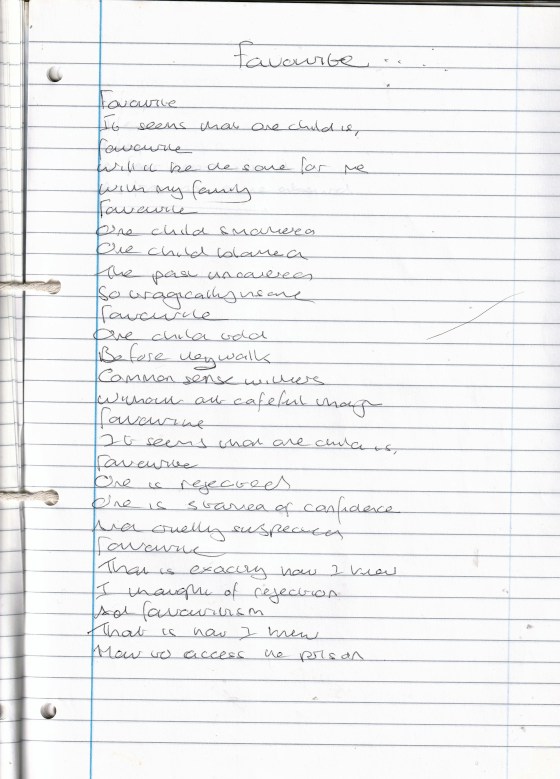 Favourite ...
Favourite
It seems that one child is,
favourite
Will it be the same for me
With my family
Favourite
One child smothered
One child blamed
The past uncovered
So tragically
Favourite
One child told
Before they walk
Common sense withers
Without careful
Favourite
It seems that one child is,
Favourite
One is rejected
One is starved of confidence
And cruelly suspected
Favourite
That is exactly how I knew
I thought of rejection
And favouritism
That is how I knew
How to access the prison